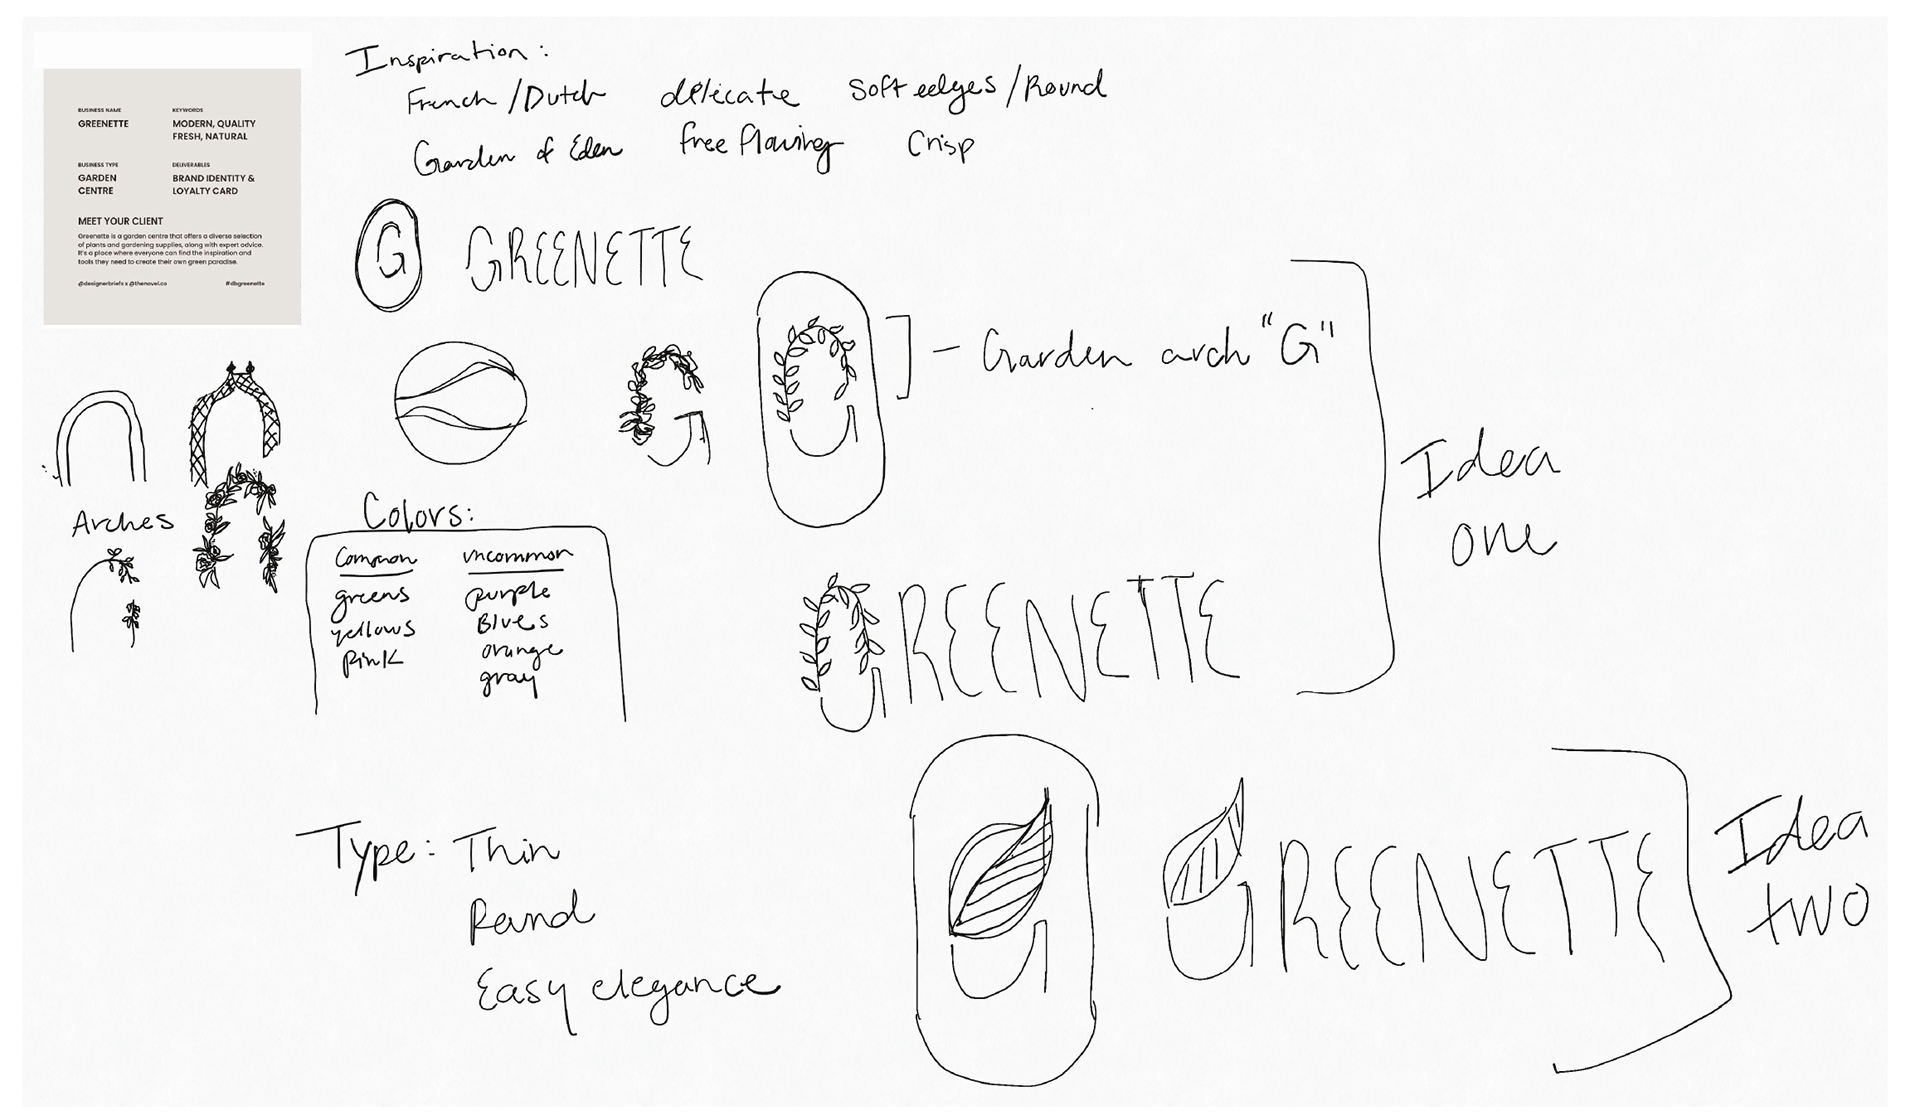 BUSINESS NAME
GREENETTE
KEYWORDS
MODERN, QUALITY
FRESH, NATURAL
BUSINESS TYPE
GARDEN
CENTRE
DELIVERABLES
BRAND IDENTITY &
LOYALTY CARD
MEET YOUR CLIENT
Greenette is a garden centre that offers a diverse selection
of plants and gardening supplies, along with expert advice.
It's a place where everyone can find the inspiration and
tools they need to create their own green paradise.
@designerbriefs x @thenovel.co
#dbgreenette
Inspiration:
French/Dutch delicate Soft edges/Round
Garden of Eden free flowing Crisp
G GREENETTE
- Garden arch "G"
Idea
one
Arches
Colors:
Common
greens
yellows
Pink
uncommon
purple
Blues
orange
gray
GREENETTE
Type: Thin
Round
Easy elegance
G
GREENETTE
Idea
two